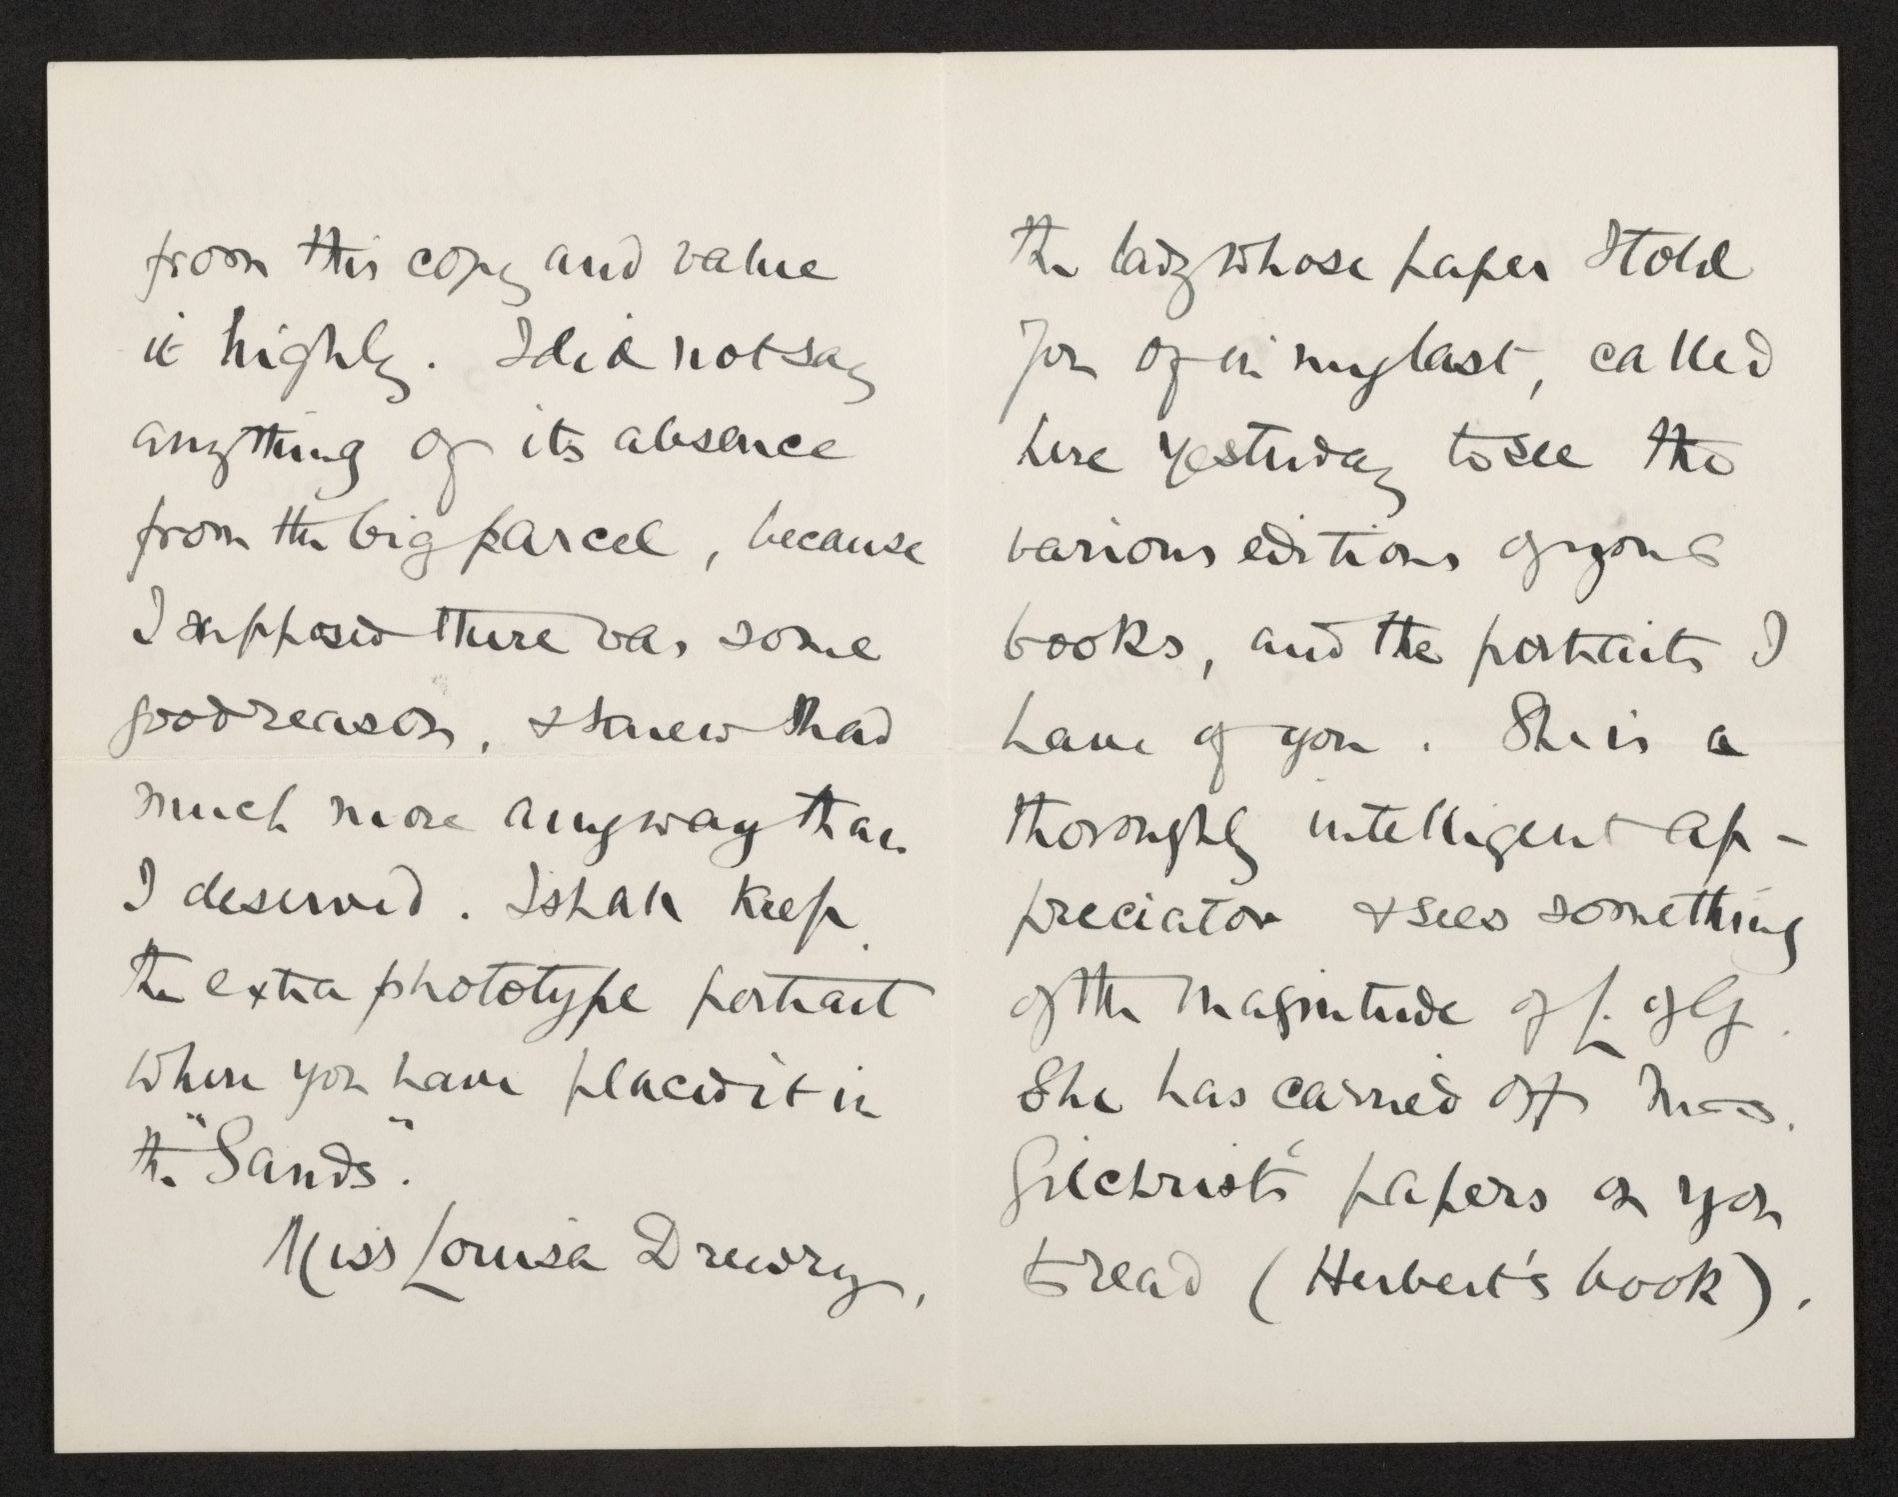 from this copy and value
it highly. I did not say
anything of its absence
from the big parcel, because
I supposed there was some
good reason, & knew I had
much more anyway than
I deserved. I shall keep
the extra phototype portrait
where you have placed it in
the "Sands".
Miss Louisa Drewry,
the lady whose paper I told
you of in my last, called
here yesterday to see the
various editions of your
books, and the portraits I
have of you. She is a
thoroughly intelligent ap-
preciator & sees something
of the magnitude of L. of G.
She has carried off Mrs.
Gilchrist's papers on you
to read (Herbert's book).